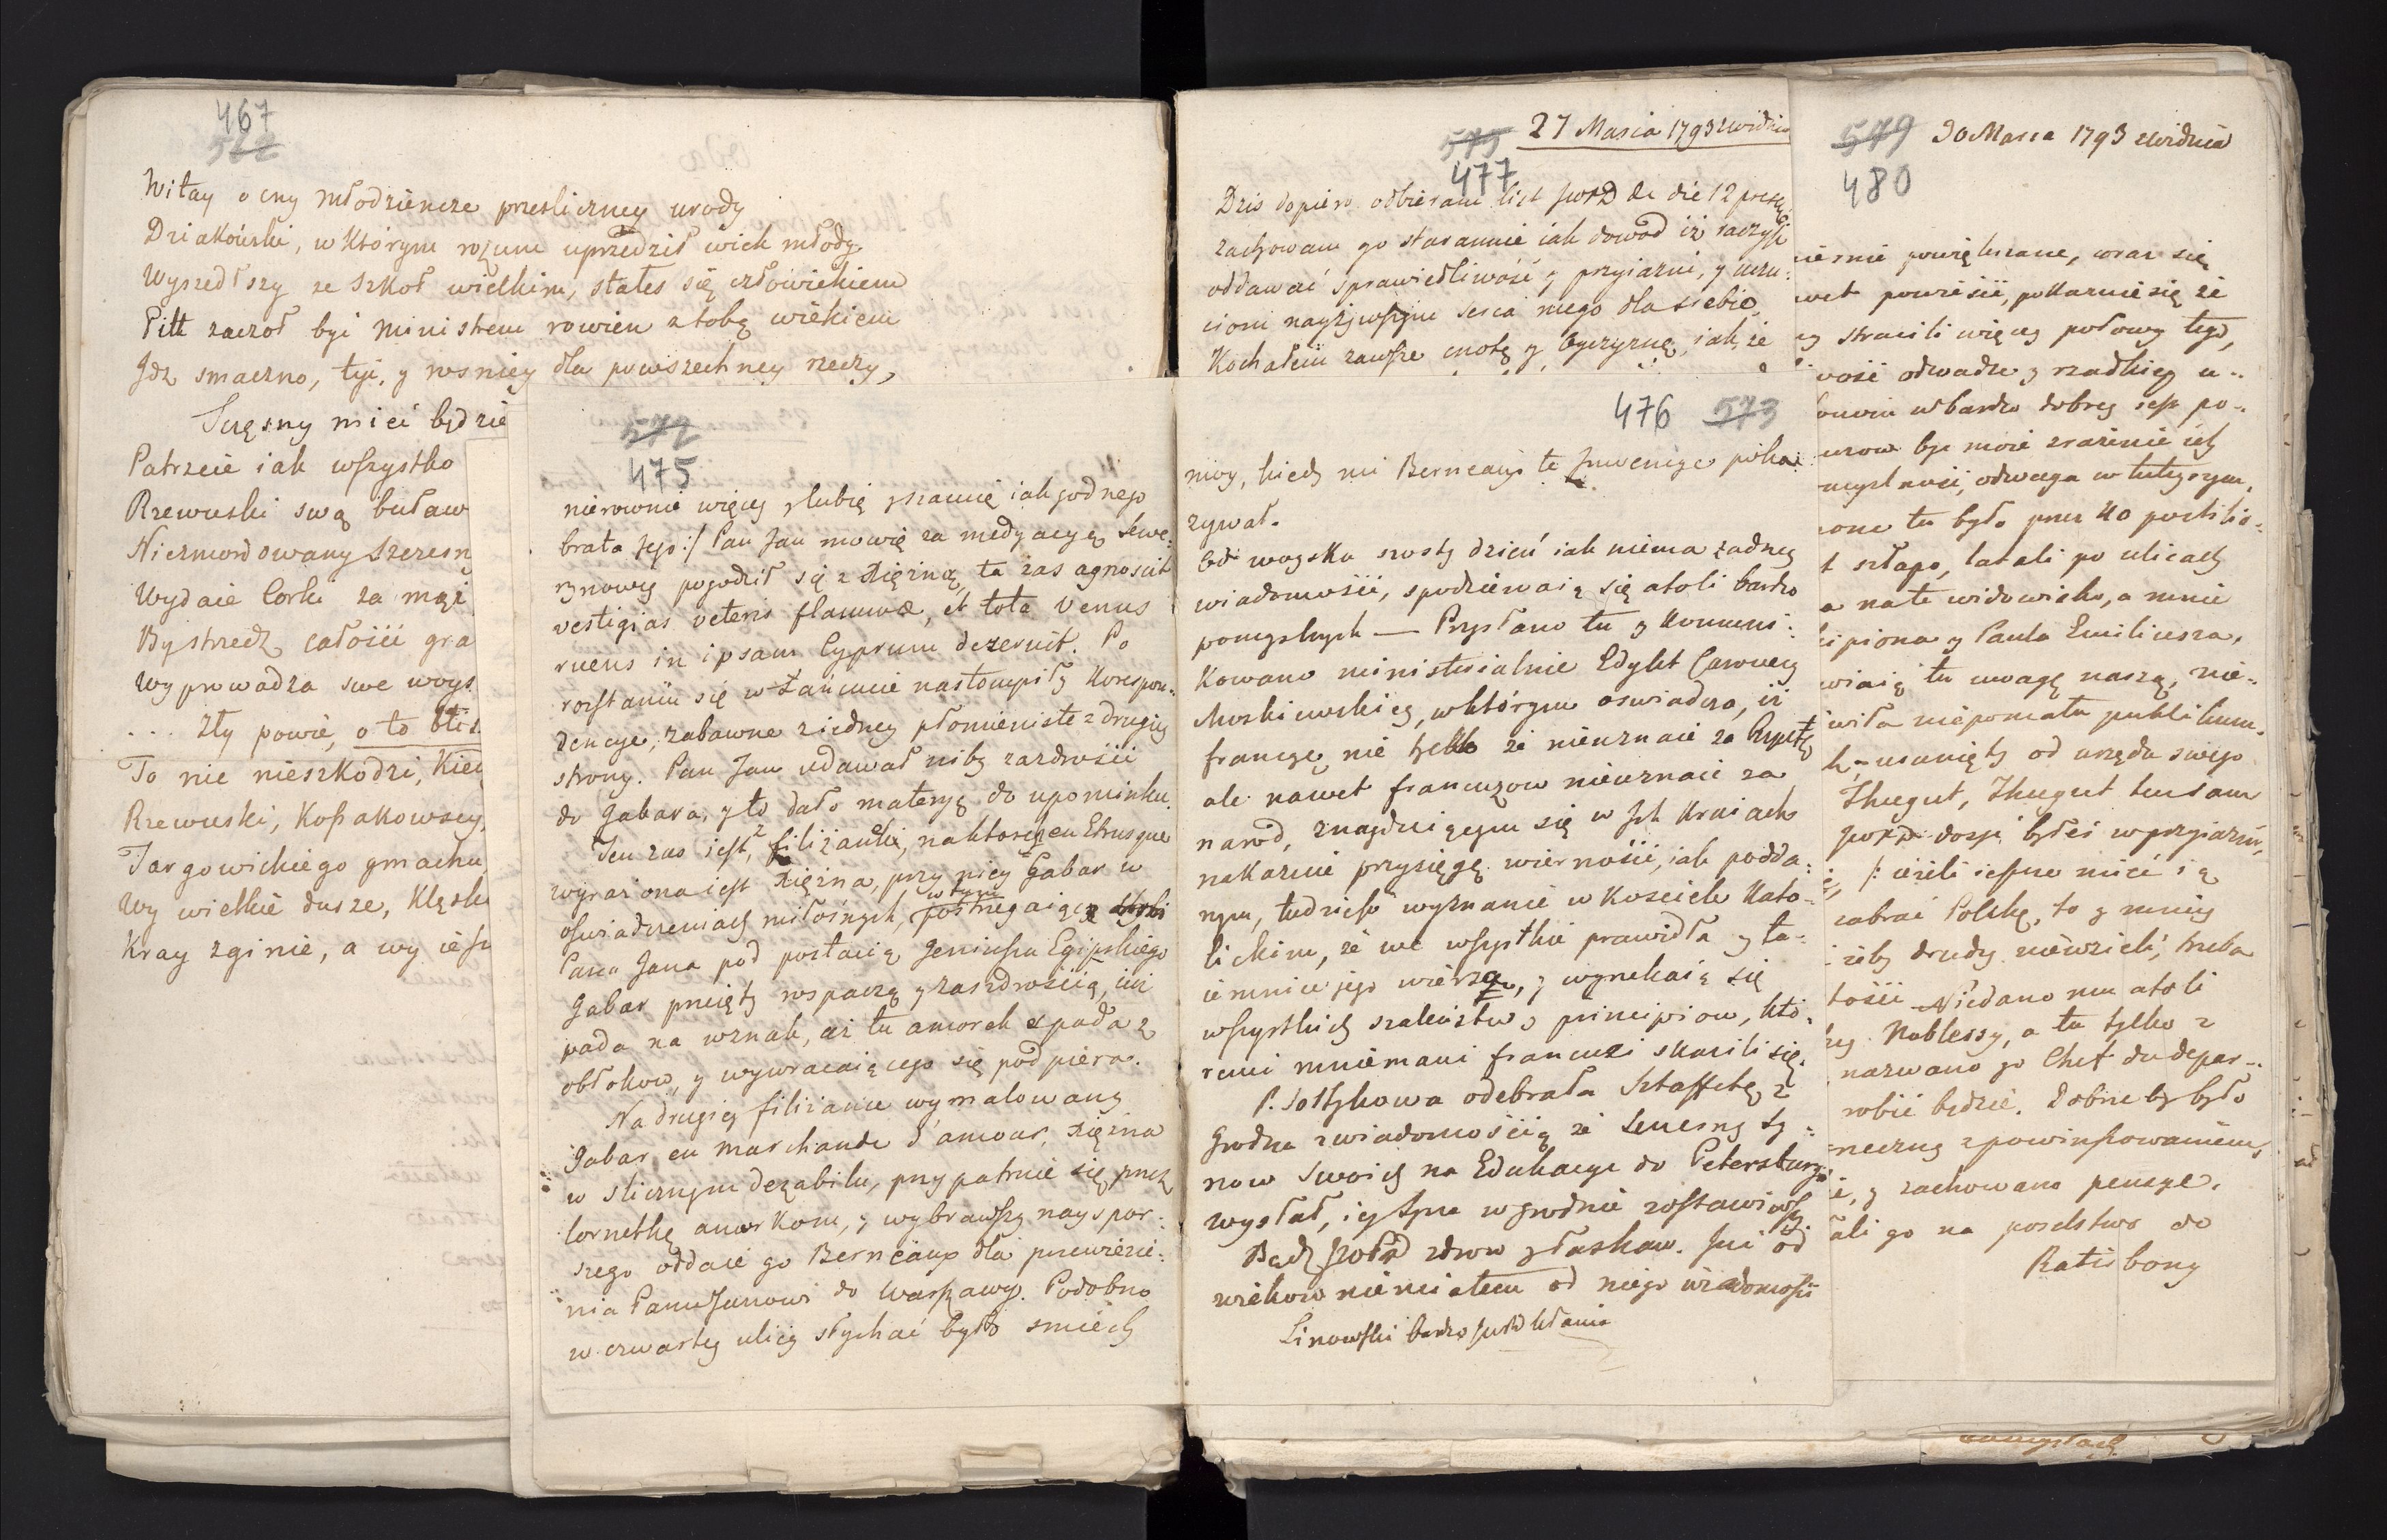 467
522
Witay o cny Młodzieńcze presliczney urody
Dziakoński, w którym rozum uprzedził wiek młody
Wyszedłszy ze Szkoł wielkim, stałes się człowiekiem
Pitt zaczoł byi Ministrem rowien z tobą wiekiem
Jdz smaczno, tyi, y rosniey dla powszechney rzeczy,
będzie
Patrzcie iak wszystko
Rzewuski swą buław
Niezmordowany Szczesn
Wydaie Corki za męż
Bystrzedz całości gra
Wyprowadza swe woys
... Zły powie, o to
To nie nieszkodzi, kied
Rzewuski, Kossakowscy,
Targowickiego gmachu
Wy wielkie dusze, klęsk
Kray zginie, a wy ies
572
475
nierownie więcey lubię y szacuię iak godnego
brata Jego:/ Pan Jan mowię za medyacyą Sewe:
rynowey pogodził się z Xiężną, ta zas agnoscit
vestigias veteris flammæ, et tota Venus
ruens in ipsam Cyprum dezeruit. Po
rozstaniu się w Łańcucie nastompiły korespon:
dencye, zabawne z iedney płomieniste z drugiey
strony. Pan Jan udawał niby zazdrości
do Gabara, y to dało materyę do upominku.
Ten zas iest, 2 filiżanki, na ktorey en Etrusque
wyrażona iest Xiężna, przy niey Gabar w
oswiadczeniach miłosnych, w tym postrzegaiący
Pana Jana pod postacią Geniusza Egipskiego
Gabar przięty rospaczą y zazdroscią, iuż
pada na wznak, aż tu amorek spada z
obłokow, y wywracaiącego się podpiera.
Na drugiey filiżance wymalowany
Gabar en marchande d'amour, Xiężna
w slicznym dezabilu, przypatruie się przez
lornetkę amorkom, y wybrawszy nayspor:
szego oddaie go Berneaux dla przewiezie:
nia Panu Janowi do Warszawy. Podobno
w czwartey ulicy słychać było smiech
27 Marca 1793 z Widnia
575
477
Dzis dopiero odbieram list JWPD de die 12 prese
zachowam go starannie iak dowod iż raczysz
oddawać sprawiedliwość y przyiazni, y uczu:
ciom nayżywszym serca mego dla siebie
Kochałem zawsze cnotę y oyczyznę, iak, że
476 573
moy, kiedy mi Berneaux te Inwencye poka:
zywał.
Od woyska szosty dzień iak niema żadney
wiadomości, spodziewaią się atoli bardzo
pomyslnych — Przysłano tu y kommuni:
kowano ministerialnie Edykt Carowey
Moskiewskiey, w którym oswiadcza, iż
francyę nie tylko że nieuznaie za Rzpltę
ale nawet francuzow nieuznaie za
narod, znayduiącym się w Jch kraiach
nakazuie przysięgę wiernosci, iak podda:
nym, tudziesz wyznanie w Kosciele Kato:
lickim, że we wszystkie prawidła y ta:
iemnice jego wierzą, y wyrzekaią się
wszystkich szaleństw y principiow, któ:
remi mniemani francuzi skazili się.
P. Sołtykowa odebrała Sztaffetę z
Grodna z wiadomoscią że Szczesny sy:
now swoich na Edukacyę do Petersburga
wysłał, w Grodnie zostawiwszy
Bądź JWPD zdrow y łaskaw. Już od
wiekow niemiałem od niego wiadomosci
Linowski bardzo JWPD kłania
579
480
30 Marca 1793 z Widnia
niernie powiększane, coraz się
wet powiesci, pokazuie się że
ey stracili więcey połowy tego,
wości odwadze y rzadkiey u:
w bardzo dobrey po:
może zrażenie ich
odwaga w
one tu było przez 40 postilio:
latali po ulicach
a na te widowisko, a mnie
ipiona y Paula Emiliusza,
wiaią tu uwagę naszą, nie:
wiła niepomału publikum.
usunięty od urzędu swego
Thugut, Thugut ten sam
JWPD dosyć byłeś w przyiazni,
/: ieżeli ieszcze mieć ią
zabrać Polskę, to y mniey
żeby drudy niewzieli; trzeba
tości Niedano mu atoli
Noblessy, a tu tylko z
nazwano go Chef du depar:
robić będzie. Dobrze by było
z powinszowaniem,
y zachowano pensye.
ali go na poselstwo do
Ratisbony